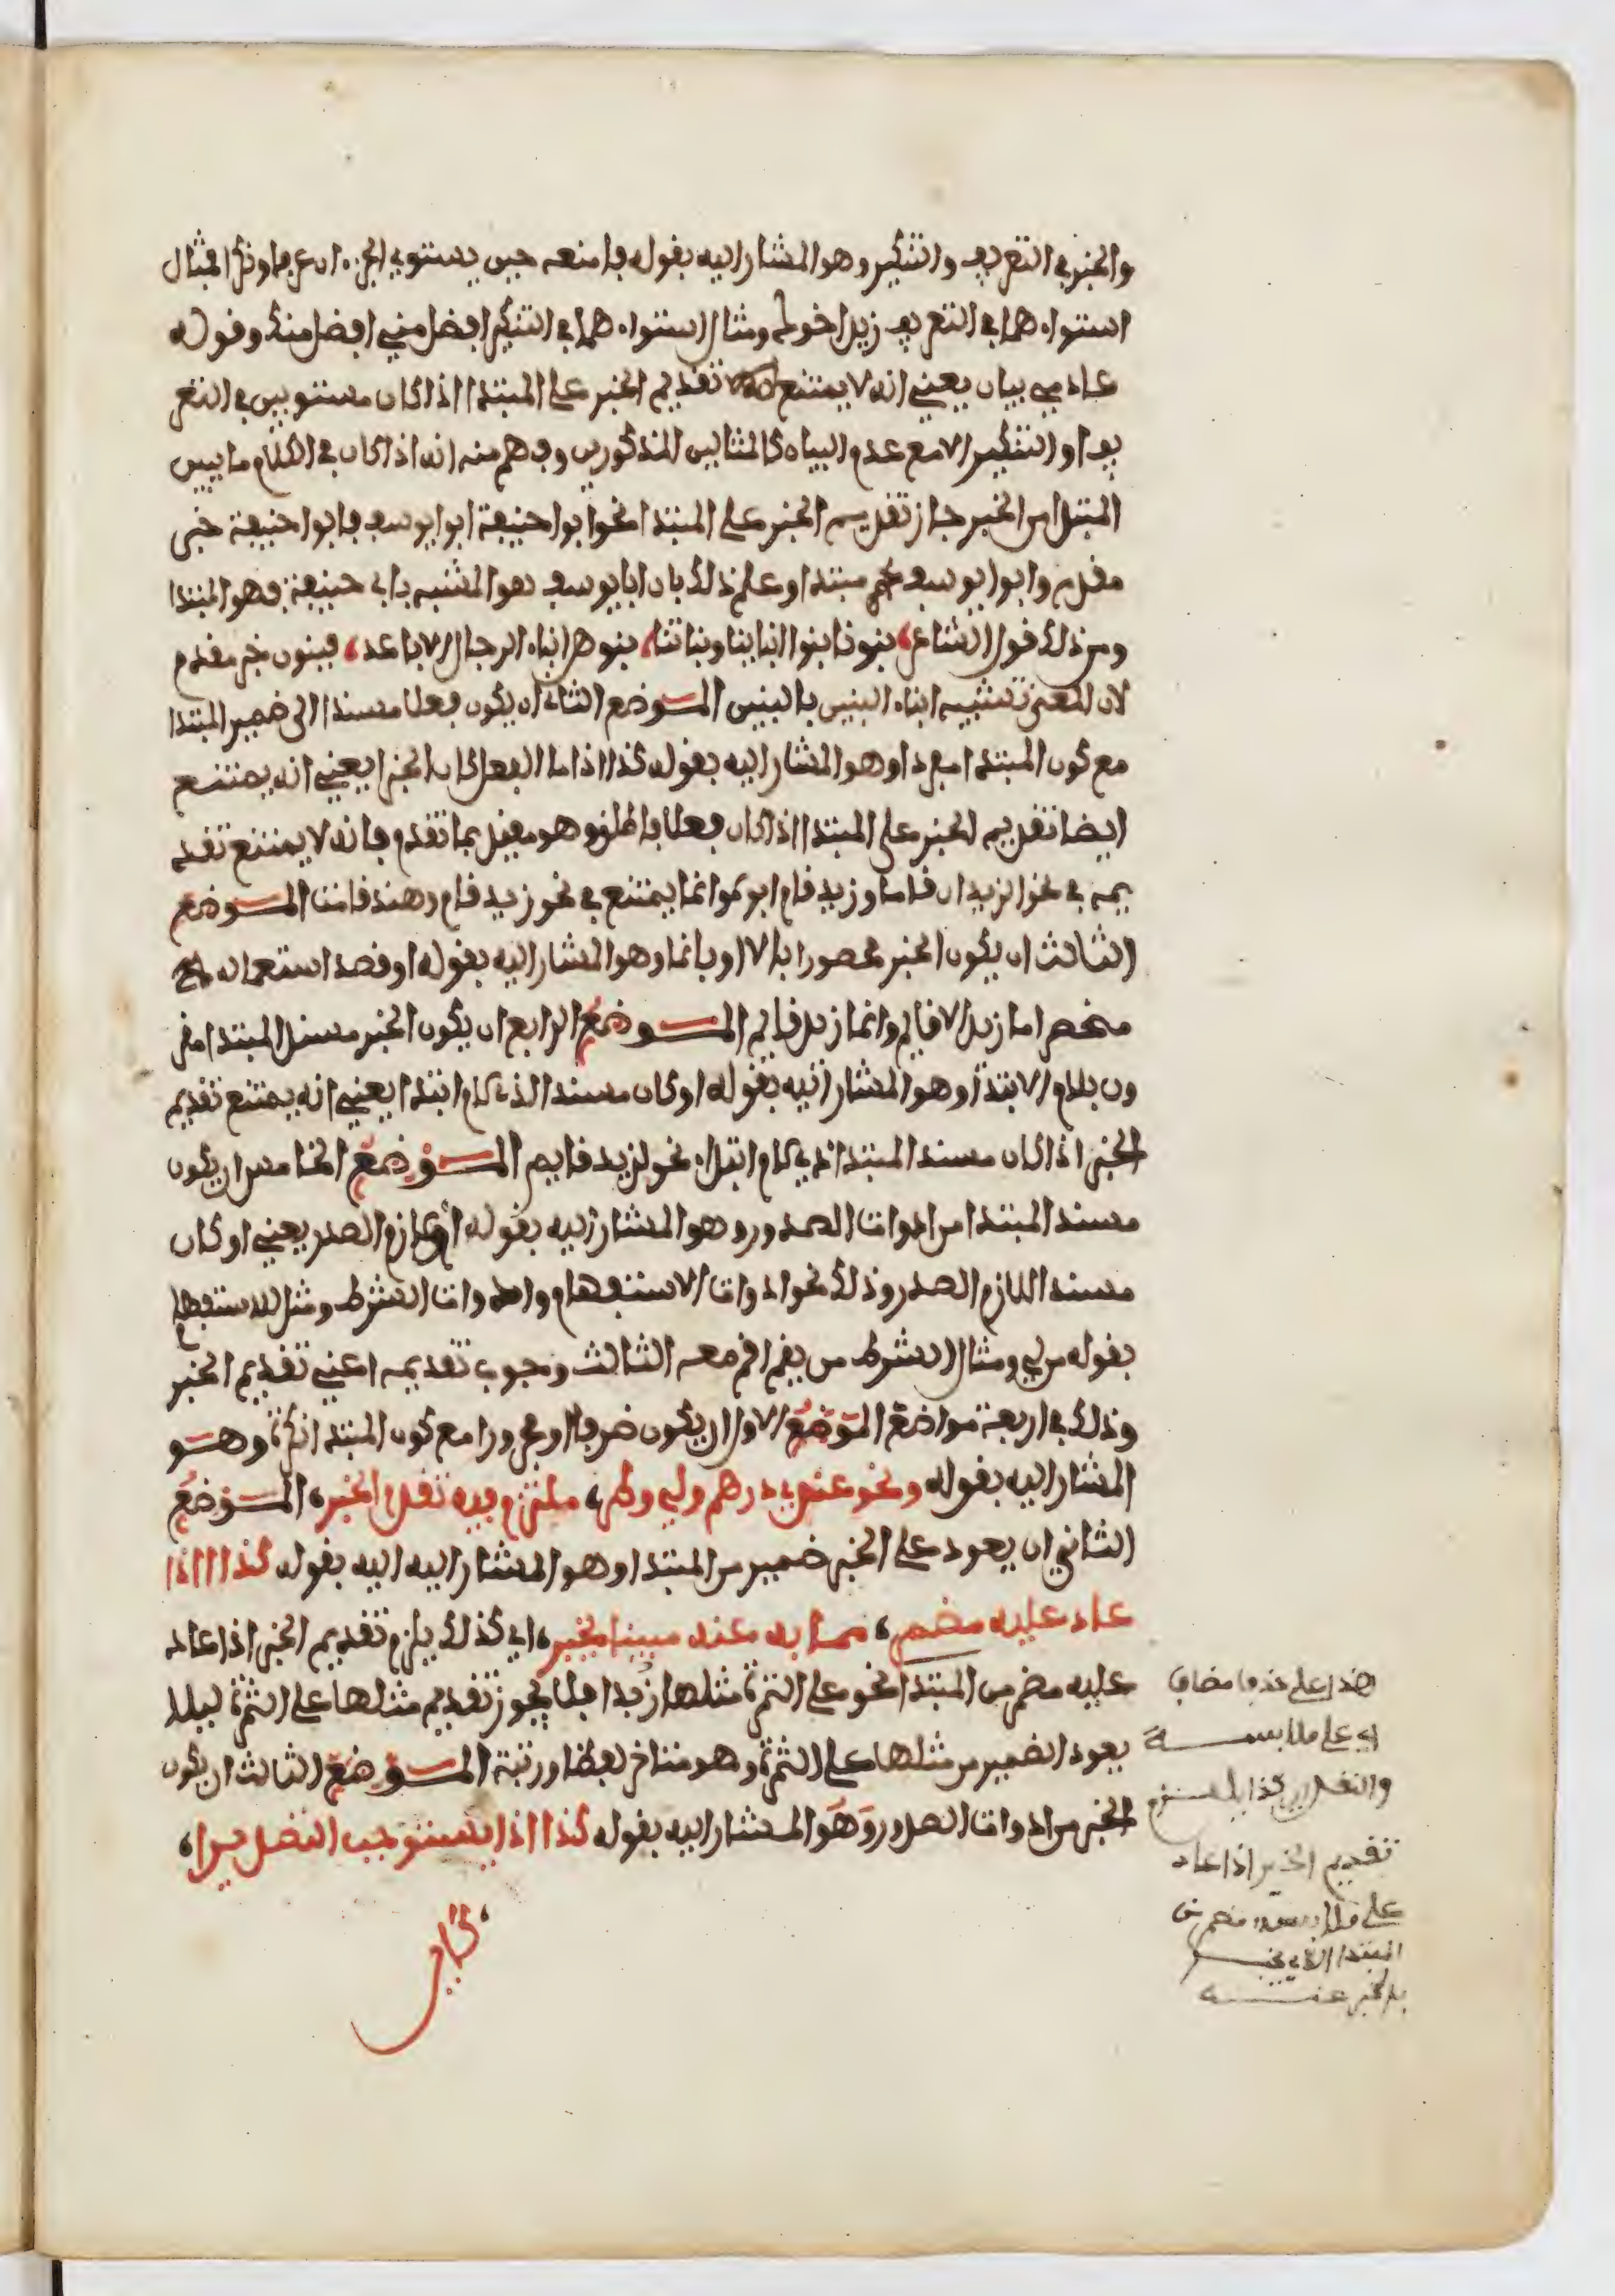 والخبر في التعريف والتنكير وهو المشار اليه بقوله فامنعه حين يستوي الجزءان عرفا ونكرا فمثال
استواءهما في التعريف زيد اخوك ومثال استواءهما في التنكير افضل مني افضل منك وقوله
عادمي بيان يعني انه لا يمتنع تقديم الخبر على المبتدا اذا كان مستويين في التعر
يف او التنكير الا مع عدم البيان كالمثالين المذكورين وفهم منه انه اذا كان في الكلام ما يبين
المبتدا من الخبر جاز تقديم الخبر على المبتدا نحو ابوا حنيفة ابوا يوسف فابوا حنيفة خبر
مقدم وابوا يوسف مبتدا وعلم ذلك بان ابا يوسف هو المشبه بابي حنيفة فهو المبتدا
ومن ذلك قول الشاعر، بنونا بنوا ابنايناوبناتنا، بنوهن ابناء الرجال الاباعد، فبنون خبر مقدم
لان المعنى تشبيه ابناء البنين بالبنين الموضع الثاني ان يكون فعلا مسندا الى ضمير المبتدا
مع كون المبتدا مفردا وهو المشار اليه بقوله كذا اذا ما الفعل كان الخبرا يعني انه يمتنع
ايضا تقديم الخبر على المبتدا اذا كان فعلا فاطلق وهو مقيد بما تقدم فانه لا يمتنع تقد
يمه في نحو الزيدان قاما وزيد قام ابوه وانما يمتنع في نحو زيد قام وهند قامت الموضع
الثالث ان يكون الخبر محصورا بالا او بانما وهو المشار اليه بقوله او قصد استعماله
منحصرا ما زيد الا قايم وانما زيد قايم الموضع الرابع ان يكون الخبر مسند المبتدا مقر
ون بلام الابتدا وهو المشار اليه بقوله او كان مسندا لذي لام ابتدا يعني انه يمتنع تقديم
الخبر اذا كان مسند المبتدا ذي لام ابتداء نحو لزيد قايم الموضع الخامس ان يكون
مسند المبتدا من ادوات الصدور وهو المشار اليه بقوله او لازم الصدر يعني او كان
مسند اللازم الصدر وذلك نحو ادوات الاستفهام وادوات الشرط ومثل للاستفهام
بقوله من لي ومثال الشرط من يقم اقم معه الثالث وجوب تقديمه اعني تقديم الخبر
وذلك في اربعة مواضع الموضع الاول ان يكون ضرفا او مجرورا مع كون المبتدا نكرة وهو
المشار اليه بقوله ونحو عندي درهم ولي وطر، ملتزم فيه تقدم الخبر، الموضع
الثاني ان يعود على الخبر ضمير من المبتدا وهو المشار اليه اليه بقوله كذا اذا
عاد عليه مضمر، مما به عنه مبينا يخبر، اي كذلك يلزم تقديم الخبر اذا عاد
عليه مضمر من المبتدا نحو على الثمرة مثلها زبدا فلا يجوز تقديم مثلها على الثمرة ليلا
يعود الضمير من مثلها على الثمرة وهو متاخر لفظا ورتبة الموضع الثالث ان يكون
الخبر من ادوات الصدور وهو المشار اليه بقوله كذا اذا يستوجب التصديرا،
هذا على حذف مضاف
اي على ملابسه
والتقدير كذا يلتزم
تقديم الخبر اذا عاد
على ملابسه مضمر من
المبتدا الذي يخبر
بالخبر عنه